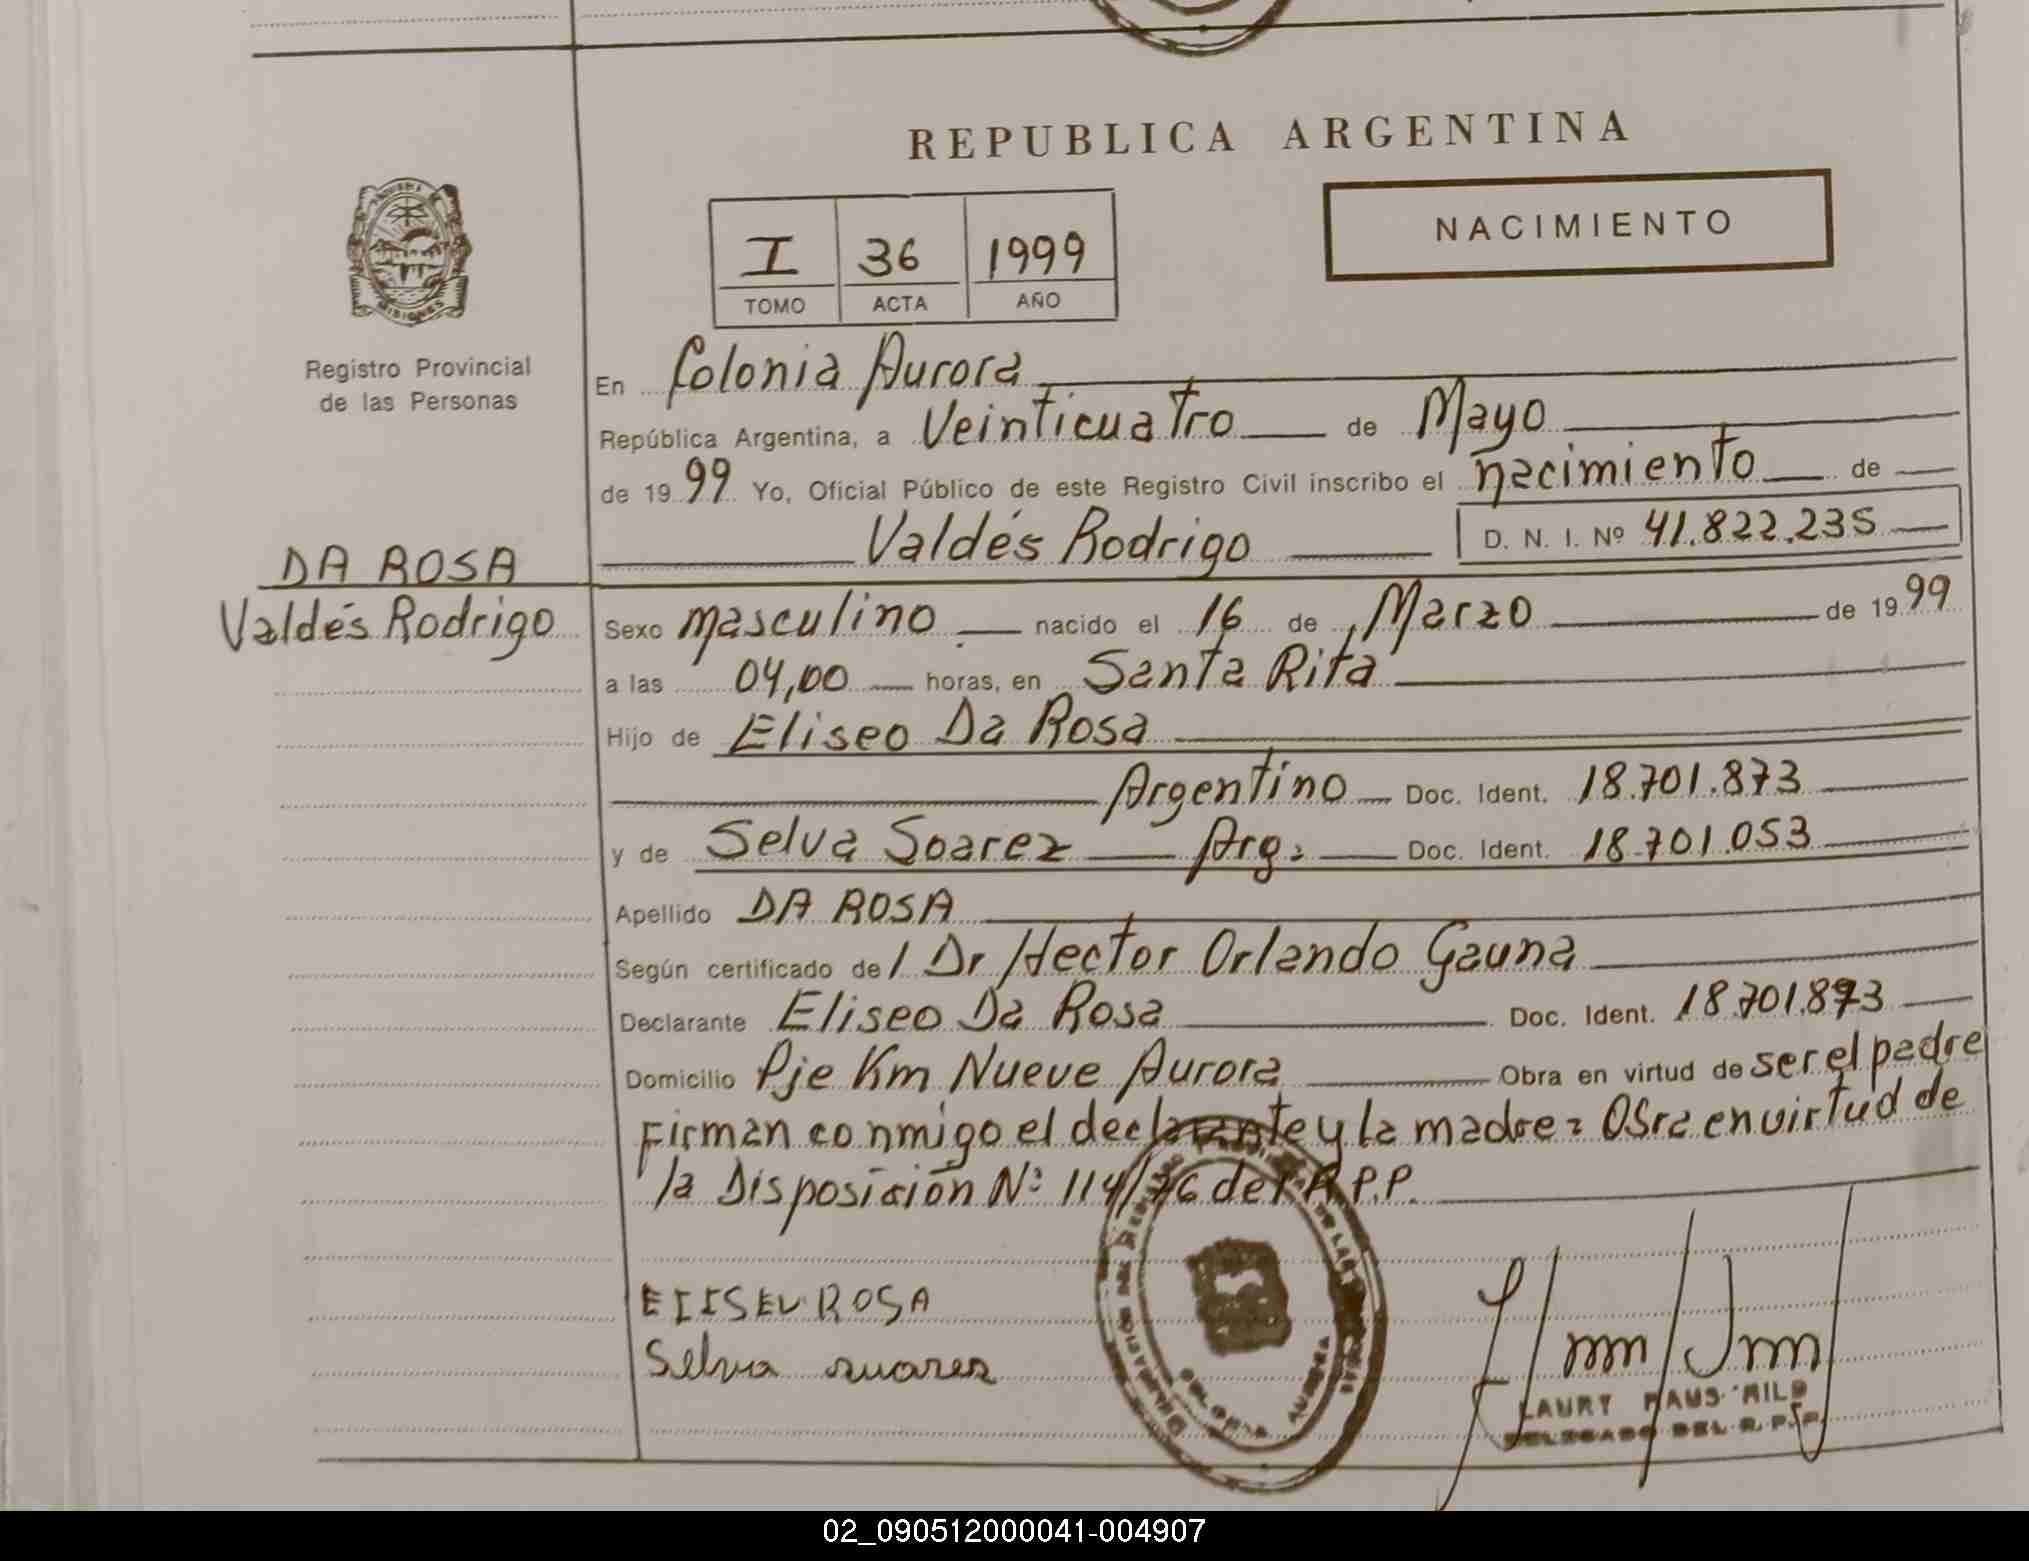 REPUBLICA ARGENTINA
NACIMIENTO
I 36 1999
TOMO ACTA AÑO
MISIONES
Registro Provincial
de las Personas
En Colonia Aurora
República Argentina, a Veinticuatro de Mayo
de 1999 Yo, Oficial Público de este Registro Civil inscribo el nacimiento de
Valdés Rodrigo D. N. I. Nº 41.822.235
DA ROSA
Valdés Rodrigo
Sexo masculino nacido el 16 de Marzo de 1999
a las 04,00 horas, en Santa Rita
Hijo de Eliseo Da Rosa
Argentino Doc. Ident. 18.701.873
y de Selva Soarez Arg. Doc. Ident. 18.701.053
Apellido DA ROSA
Según certificado de / Dr Hector Orlando Gauna
Declarante Eliseo Da Rosa Doc. Ident. 18.701.873
Domicilio Pje Km Nueve Aurora Obra en virtud de ser el padre
Firman conmigo el declarante y la madre = OSra en virtud de
la Disposición Nº 114/76 del R.P.P.
EIISEU ROSA
Selva suares
COLONIA AURORA
LAURY
DELEGADO DEL R.P.P.
02_090512000041-004907